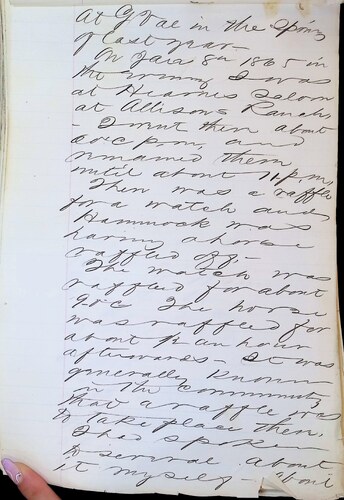 at G Vae in the Spring
of last year—
On Jan 8th 1865 in
the evening I was
at Hearnes Saloon
at Allisons Ranch,
- I went there about
oclc pm, and
remained there
until about 11 pm,
There was a raffle
for a watch and
Hammock was
having a horse
raffled off -
The watch was
raffled for about
9 oc The horse
was raffled for
about ½ an hour
afterwards - It was
generally known
in the community
that a raffle was
to take place there,
I had spoken
to several about
it myself -